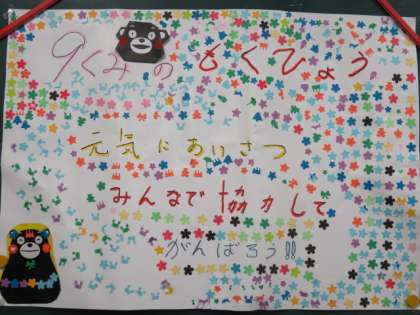 9くみのもくひょう
元気にあいさつ
みんなで協力して
がんばろう!!